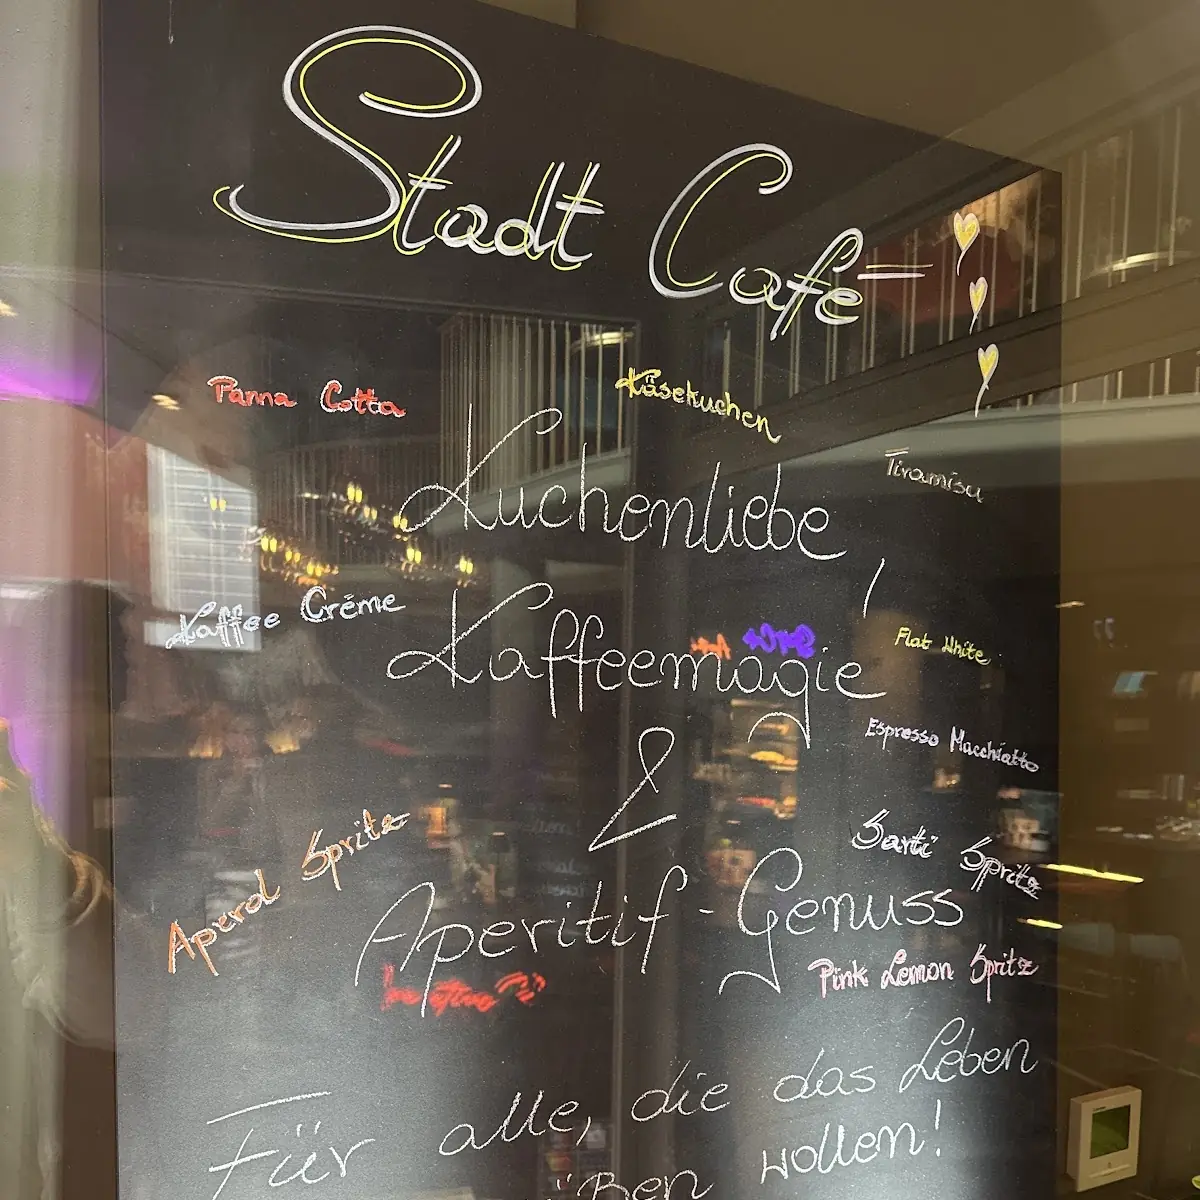 Stadt Café
Panna Cotta
Käsekuchen
Tiramisu
Kuchenliebe,
Kaffee Créme
Kaffeemagie
Flat White
Espresso Macchiatto
&
Aperol Spritz
Sarti Spritz
Aperitif-Genuss
Pink Lemon Spritz
Für alle, die das Leben
wollen!